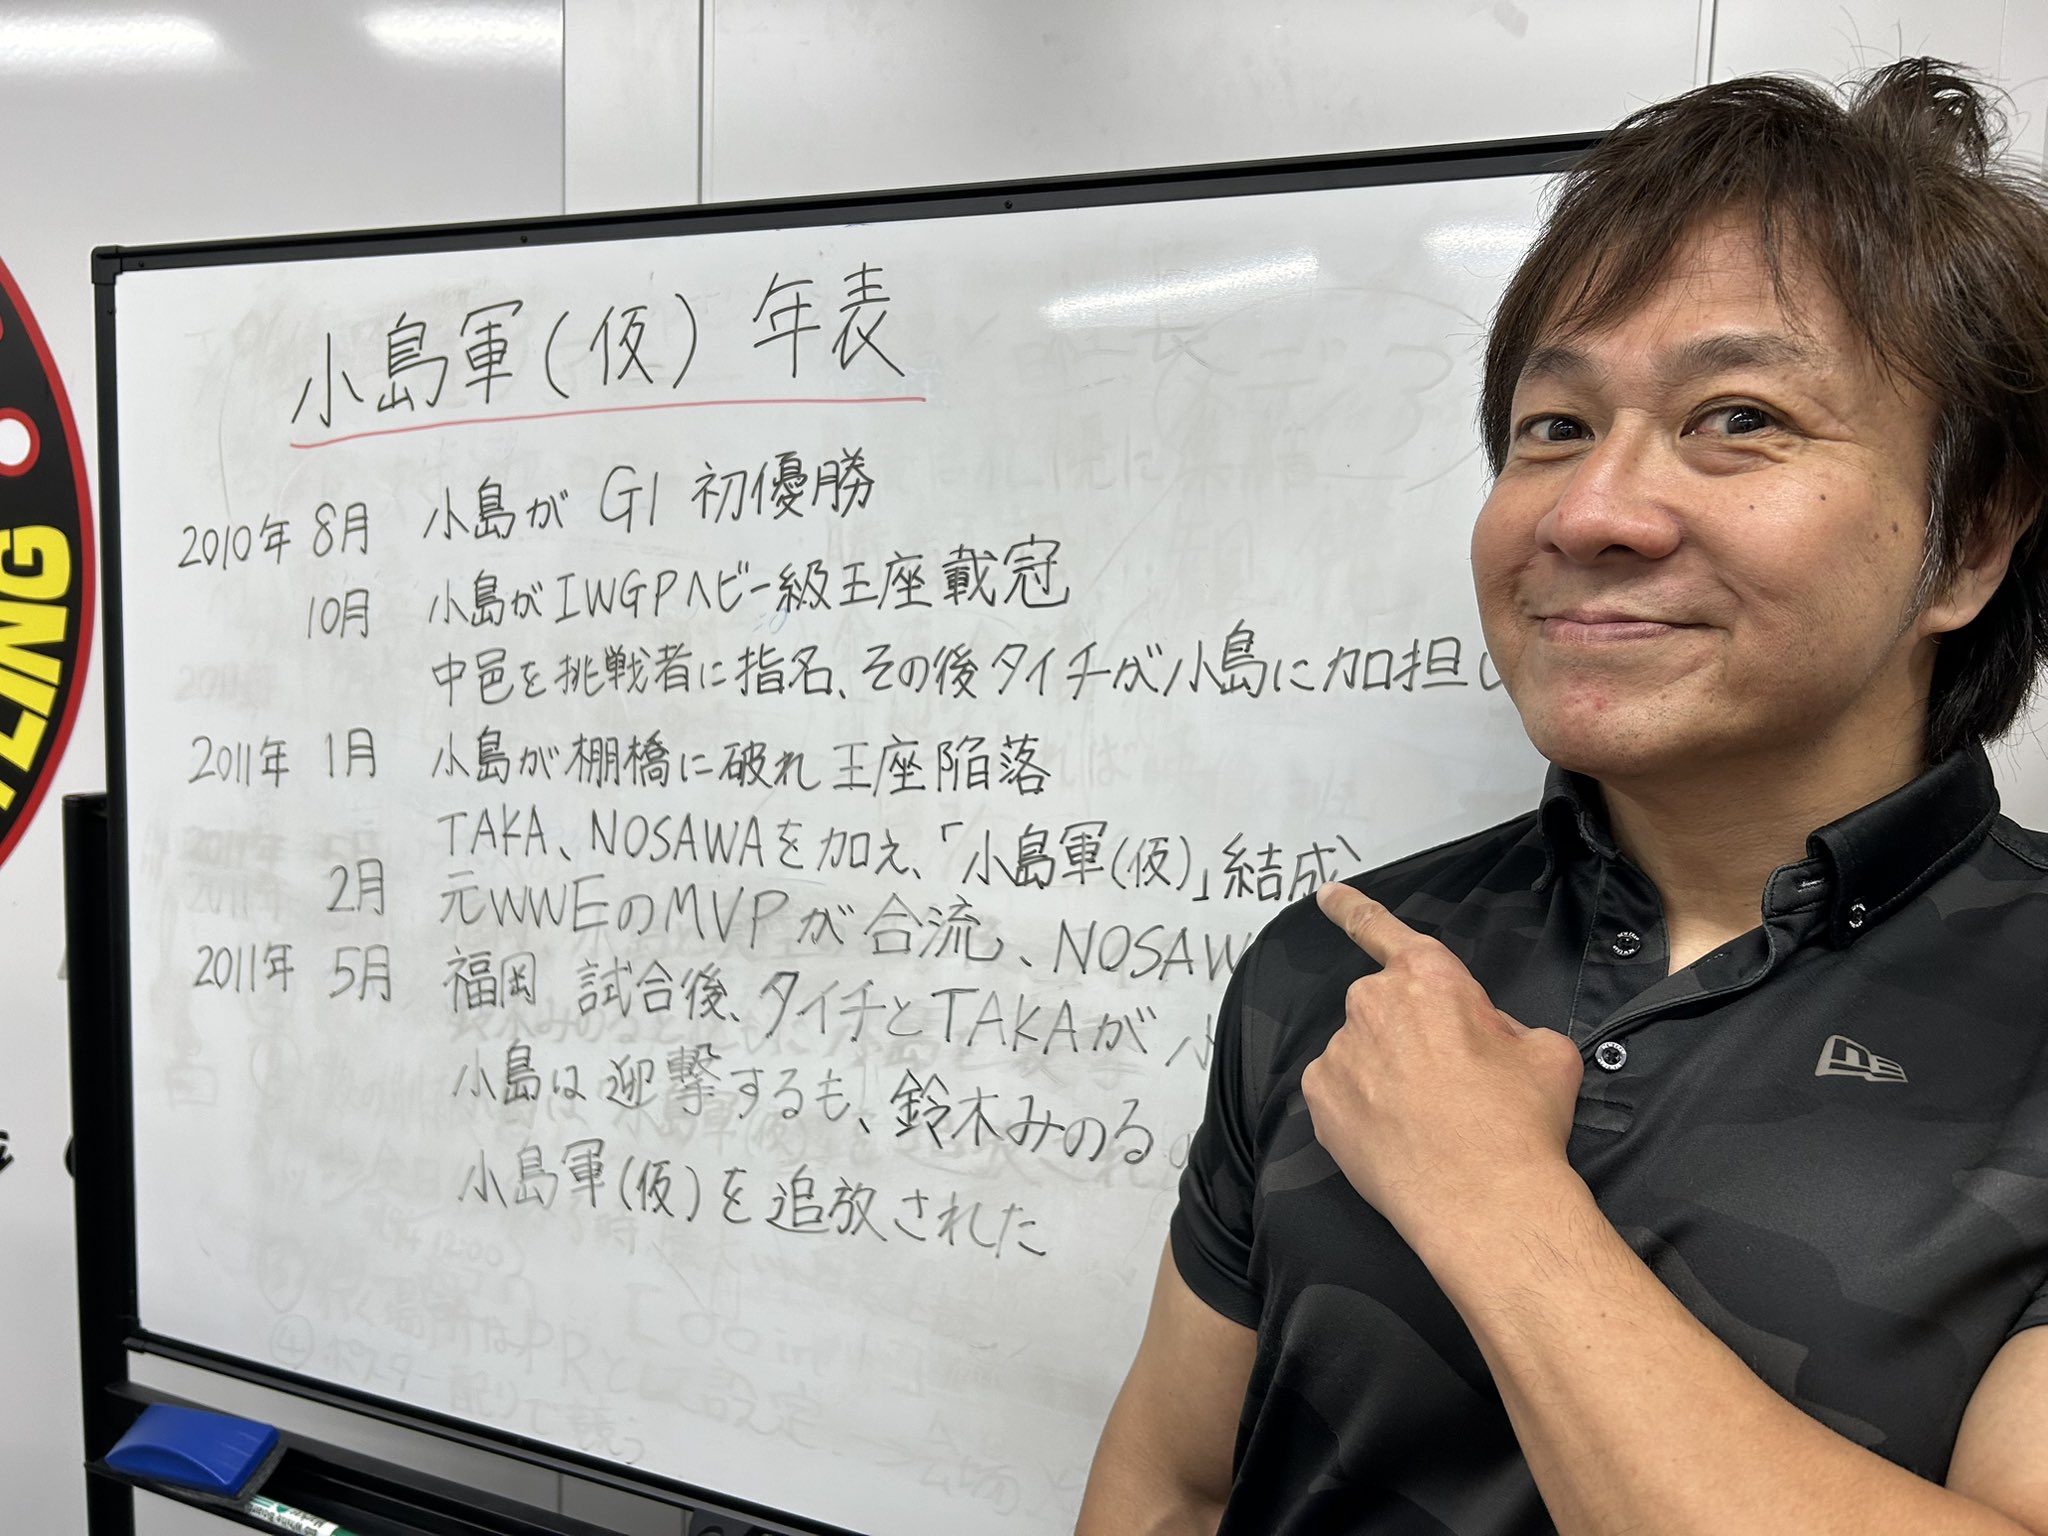 小島軍(仮) 年表
2010年 8月 小島が G1 初優勝
10月 小島がIWGPヘビー級王座載冠
中邑を挑戦者に指名、その後タイチが小島に加担し
2011年 1月 小島が棚橋に破れ王座陥落
TAKA、NOSAWAを加え、「小島軍(仮)」結成
2月 元WWEのMVPが合流、NOSAW
2011年 5月 福岡 試合後、タイチとTAKAが 小
小島は迎撃するも、鈴木みのる
小島軍(仮)を追放された
LING